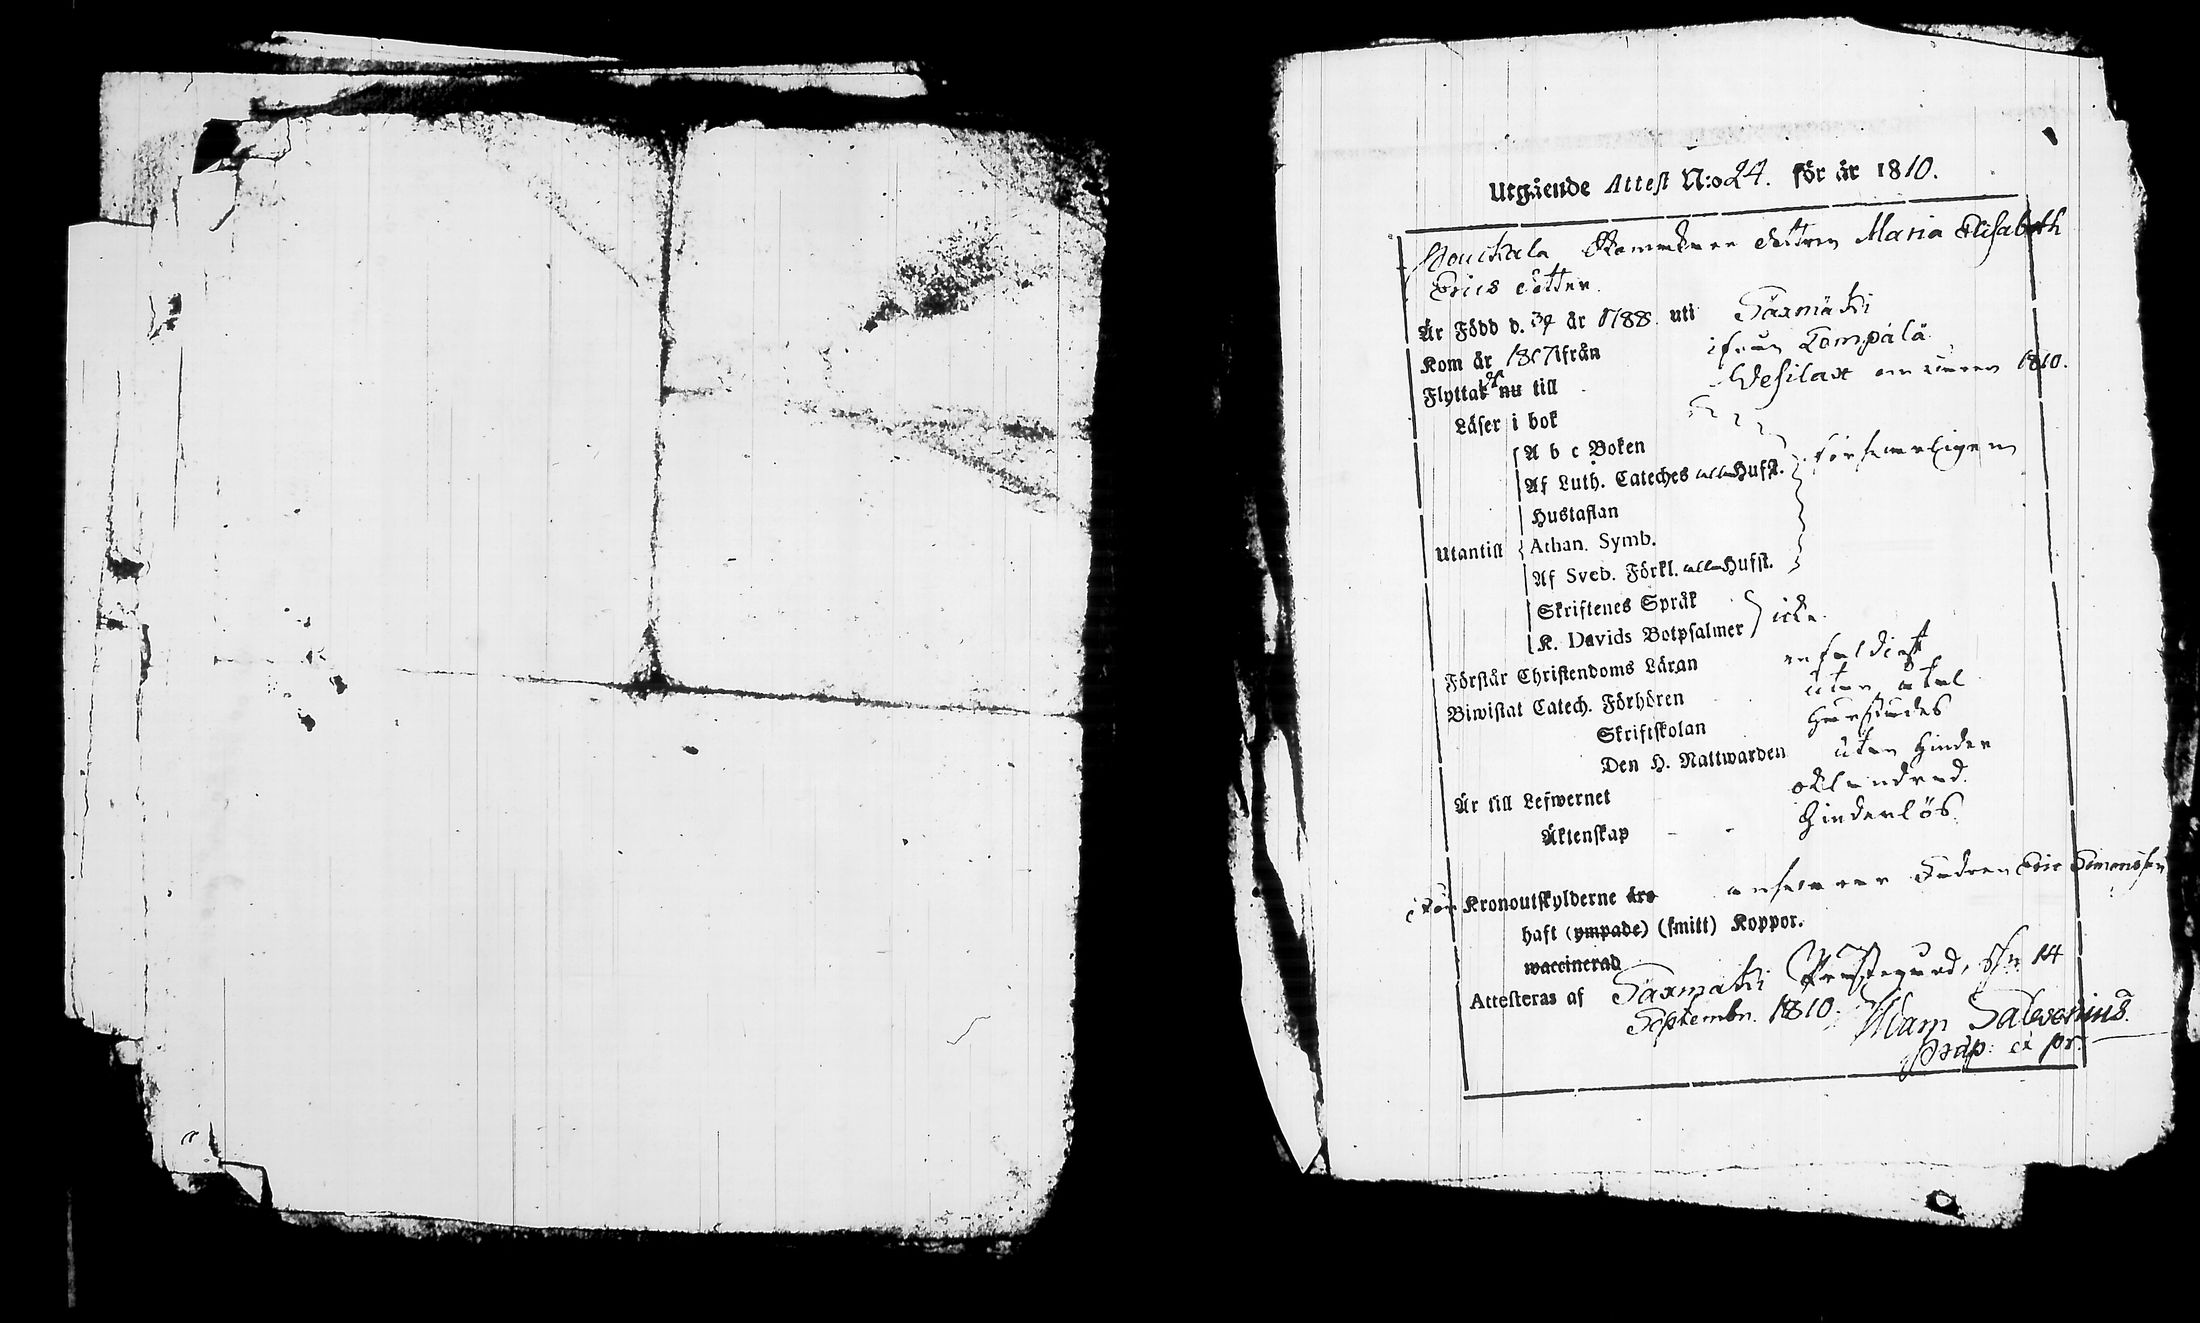 Utgående Attest N:o 24. för år 1810.
Maria Elisabeth
Erics dotter.
Är Född d. år 1788. uti Saxmäki
Kom år 1807 ifrån ifrån Lempälä
Flyttat nu till Wesilax 1810.
Läser i bok
A b c Boken
Af Luth. Cateches alla Hufst. försvarligen
Hustaflan
Utantill Athan. Symb.
Af Sveb. Förkl. alla Hufst.
Skriftenes Språk
K. Davids Botpsalmer icke.
Förstår Christendoms Läran enfaldigt
Biwistat Catech. Förhören utan åtal
Skriftskolan
Den H. Nattwarden utan hinder
Är till Lefwernet oklandrad.
Äktenskap - - hinderlös.
för Kronoutskylderne äro ansvarar Fadren Eric Simonsson
haft (ympade) (smitt) Koppor.
waccinerad
Attesteras af Saxmäki Prästegård, d. 14
Septembr. 1810. Adam Salvenius.
Præp: et pr: